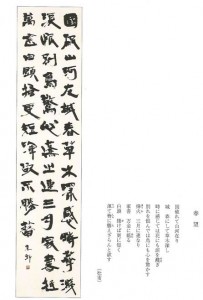 春望
国破れて山河在り
城　春にして草木深し
時に感じては花にも涙を濺ぎ
別れを恨んでは鳥にも心を驚かす
烽火　三月に連なり
家書　万金に抵る
白頭　掻けば更に短く
渾て簪に勝えざらんと欲す
（杜甫）
國破山河在城春草木深感時華濺
淚恨別鳥驚心烽火連三月家書抵
萬金白頭搔更短渾欲不勝簪